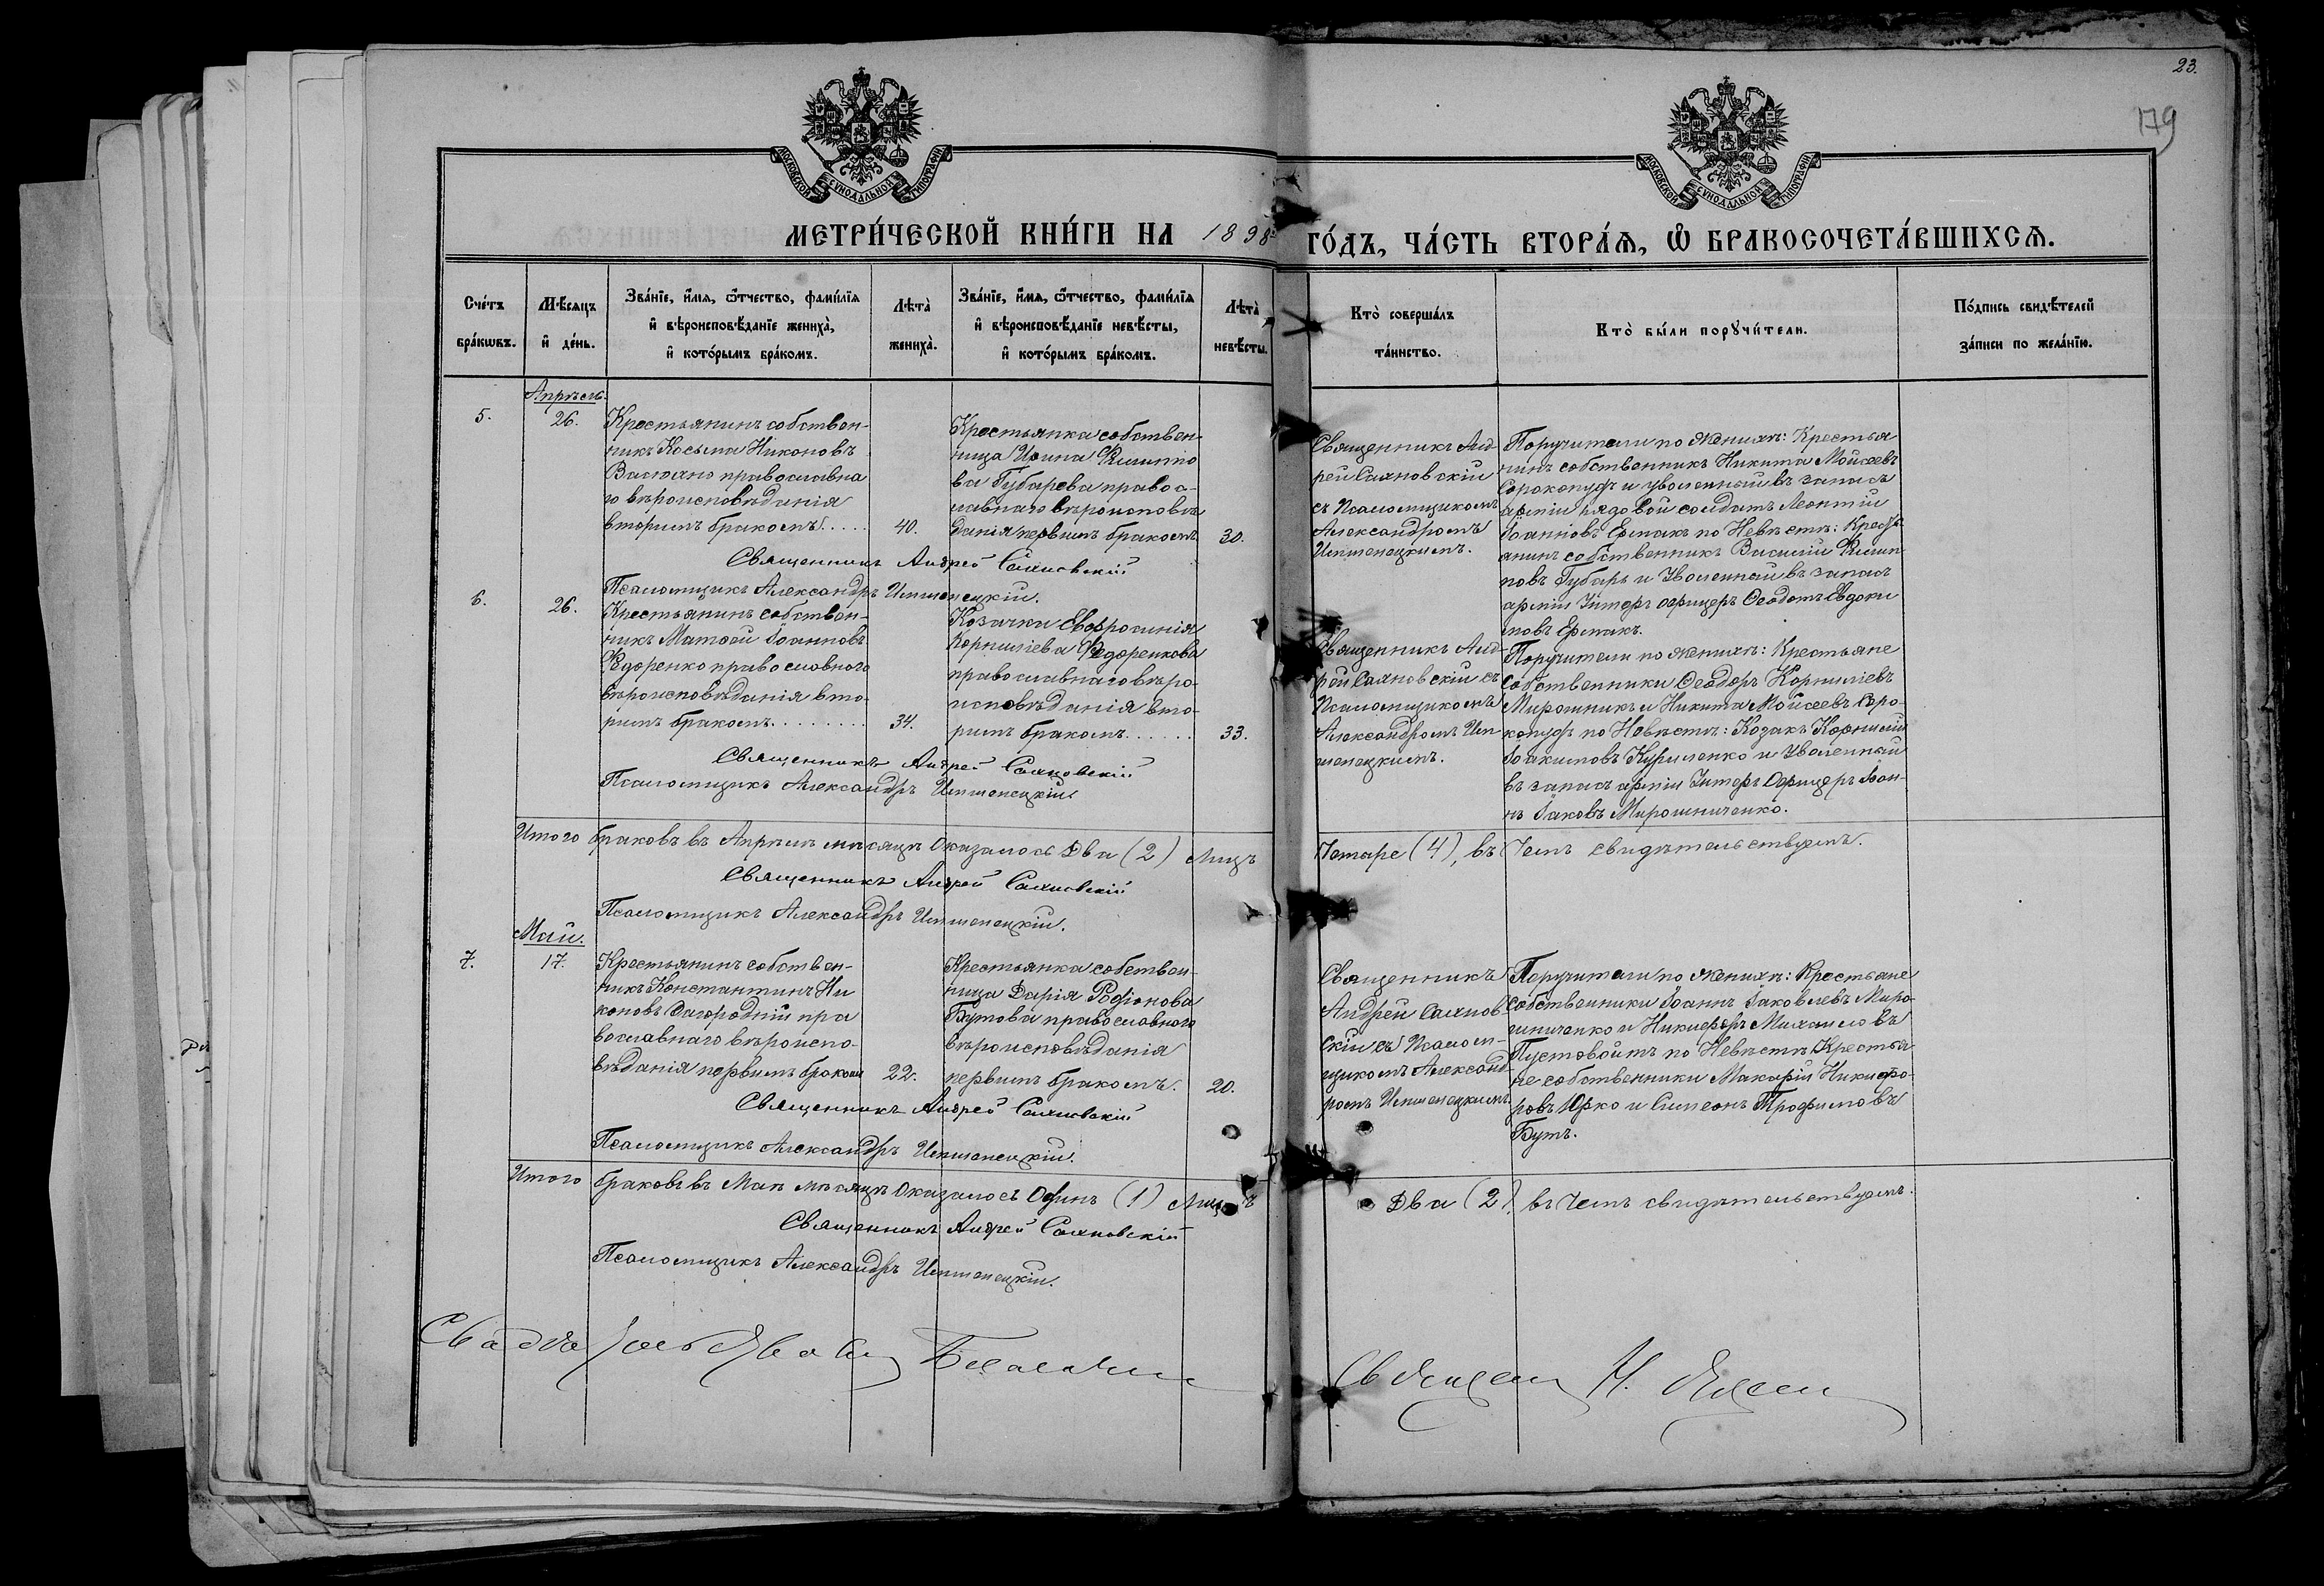 23.
179
МОСКОВСКОЙ СѴНОДАЛЬНОЙ ТИПОГРАФІИ
МОСКОВСКОЙ СѴНОДАЛЬНОЙ ТИПОГРАФІИ
МЕТРИ́ЧЕСКОЙ КНИ́ГИ НА 1898
ГО́ДЪ, ЧА́СТЬ ВТОРА́Ѧ, Ѽ БРАКОСОЧЕТА́ВШИХСѦ.
Сче́тъ
бра́кѡвъ.
Мѣ́сяцъ
и҆ де́нь.
Зва́нїе, и҆́мя, ѻ҆́тчество, фами́лїя
и҆ вѣроисповѣ́данїе жениха̀,
и҆ кото́рымъ бра́комъ.
Лѣта̀
жениха̀.
Зва́нїе, и҆́мя, ѻ҆́тчество, фами́лїя
и҆ вѣроисповѣ́данїе невѣ́сты,
и҆ кото́рымъ бра́комъ.
Лѣта̀
невѣ́сты.
Кто̀ соверша́лъ
та́инство.
Кто̀ бы́ли порꙋчи́тели.
По́дпись свидѣ́телей
за́писи по жела́нїю.
Апрѣль.
5.
26.
Крестьянинъ собствен-
никъ Косьма Никоновъ
православна
го вѣроисповѣданія
вторымъ бракомъ.....
40.
Крестьянка собствен-
ница Ирина Филиппо
ва Губарева правос-
лавнаго вѣроисповѣ
данія первымъ бракомъ
30.
Священникъ Анд-
рей Саяновскій
съ Псаломщикомъ
Александромъ
Поручители по женихѣ: Крестья
нинъ собственникъ Никита Мойсеевъ
Сорокопудъ и уволенный въ запасъ
арміи рядовой солдатъ Леонтій
Іоанновъ Ермакъ по Невѣстѣ: Кресть
янинъ собственникъ Василій Филип
повъ Губарь и Уволенный въ запасъ
арміи Унтеръ офицеръ Ѳеодотъ Евдоки
мовъ Ермакъ.
Священникъ Андрей Саяновскій
Псаломщикъ Александръ
6.
26.
Крестьянинъ собствен-
никъ Матѳей Іоанновъ
Федоренко православного
вѣроисповѣданія вто-
рымъ бракомъ.........
34.
Козачка Евфросинія
Корниліева Федоренкова
православнаго вѣро-
исповѣданія вто-
рымъ бракомъ.......
33.
Священникъ Анд-
рей Саяновскій съ
Псаломщикомъ
Александромъ
Поручители по женихѣ: Крестьяне
Собственники Ѳеодоръ Корниліевъ
Мирошникъ и Никита Мойсеевъ Соро-
копудъ по Невѣстѣ: Козакъ Корнилій
Іоакимовъ Куриленко и Уволенный
въ запасъ арміи Унтеръ Офицеръ Іоан-
нъ Іаковъ Мирошниченко.
Священникъ Андрей Саяновскій
Псаломщикъ Александръ
Итого браковъ въ Апрѣлѣ мѣсяцѣ Оказалось Два (2) Лицъ
Четыре (4), въ Чемъ свидѣтельствуемъ.
Священникъ Андрей Саяновскій
Псаломщикъ Александръ
Май.
7.
17.
Крестьянинъ собствен-
никъ Константинъ Ни
коновъ пра
вославнаго вѣроиспо-
вѣданія первымъ браком
22.
Крестьянка собствен-
ница Дарія Родіонова
Бутова православного
вѣроисповѣданія
первымъ бракомъ.
20.
Священникъ
Андрей Саянов-
скій съ Псалом-
щикомъ Александ-
ромъ
Поручители по женихѣ: Крестьяне
собственники Іоаннъ Іаковлевъ Миро-
шниченко и Никифоръ Михаиловъ
Пустовойтъ по Невѣстѣ Крестья-
не собственники Макарій Никифо-
ровъ Юрко и Симеонъ Трофимовъ
Бутъ.
Священникъ Андрей Саяновскій
Псаломщикъ Александръ
Итого браковъ въ Маѣ мѣсяцѣ Оказалось Одинъ (1) Лицъ
Два (2). въ Чемъ свидѣтельствуемъ.
Священникъ Андрей Саяновскій
Псаломщикъ Александръ